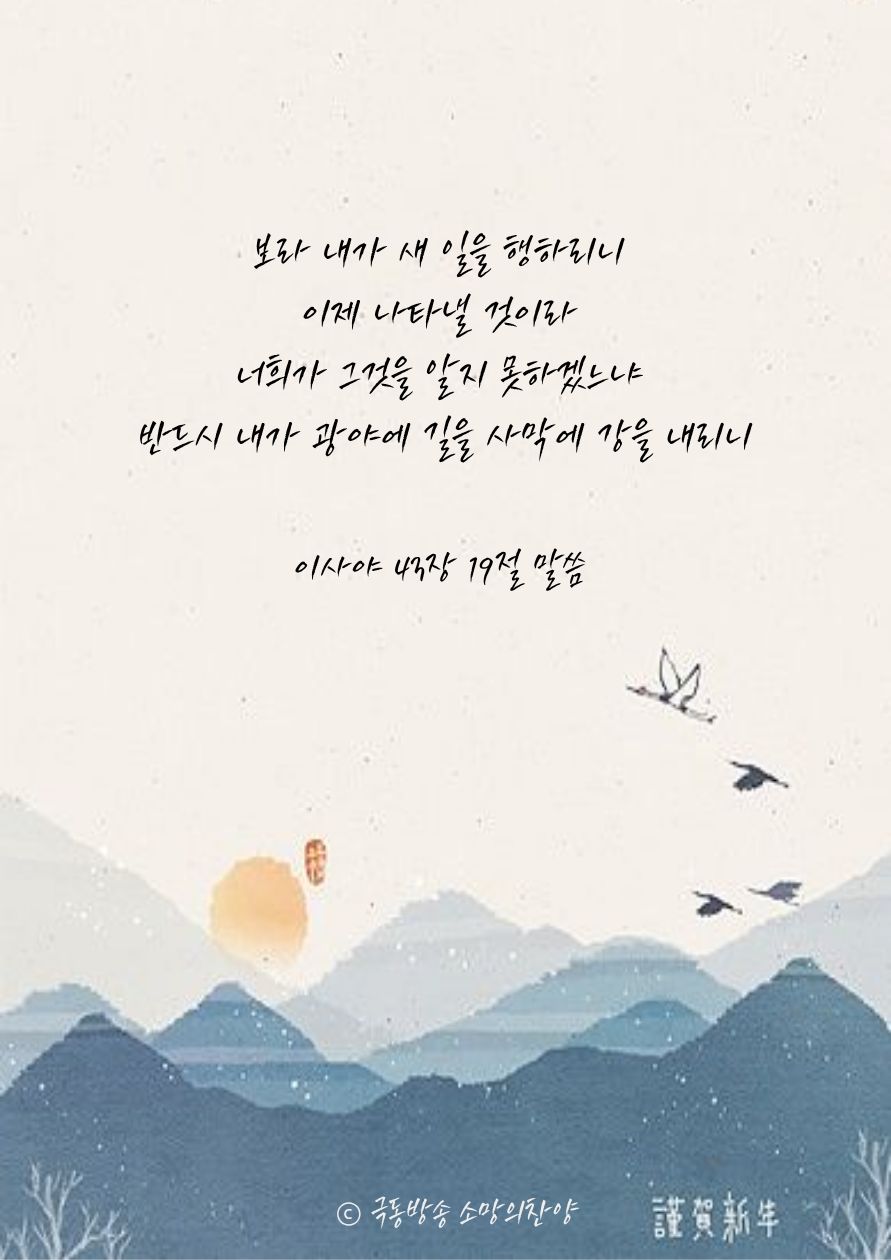 보라 내가 새 일을 행하리니
이제 나타낼 것이라
너희가 그것을 알지 못하겠느냐
반드시 내가 광야에 길을 사막에 강을 내리니
이사야 43장 19절 말씀
ⓒ 극동방송 소망의찬양
謹賀新年